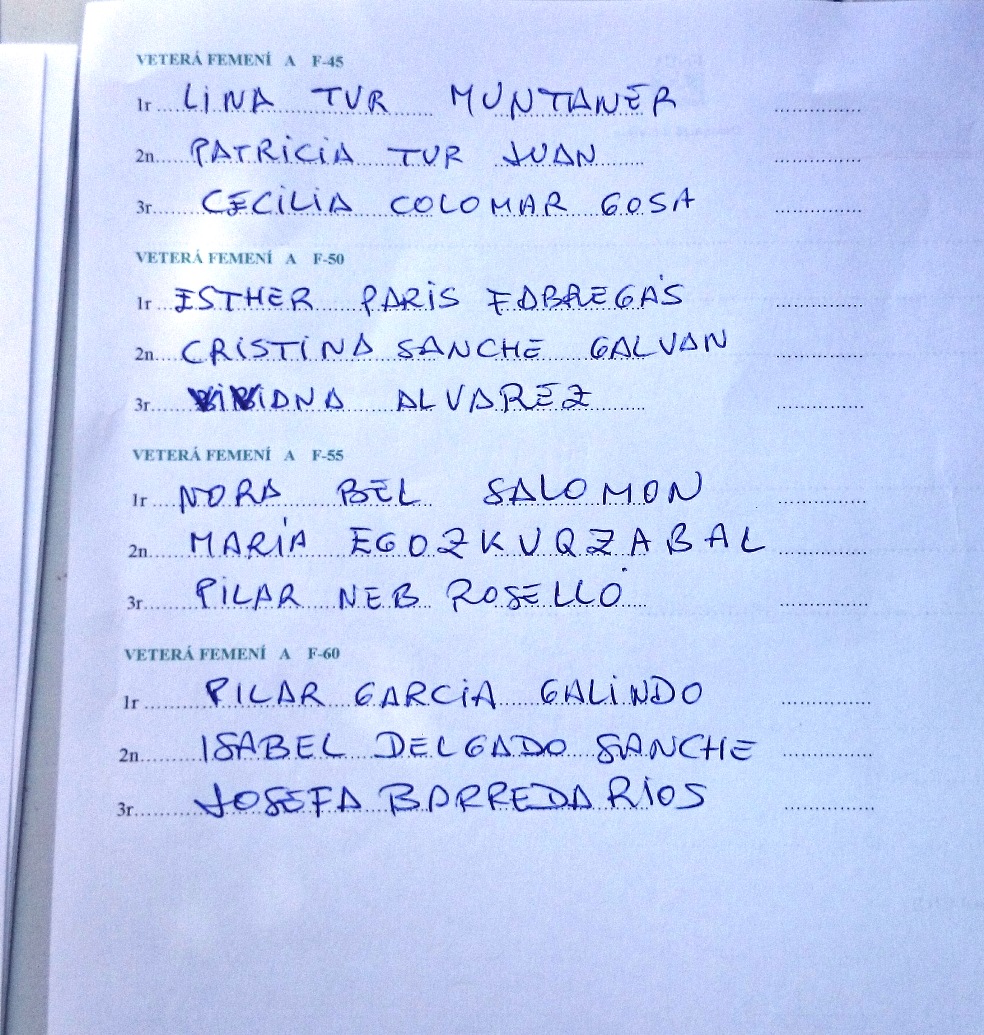 VETERÁ FEMENÍ A F-45
1r LINA TUR MUNTANER
2n PATRICIA TUR JUAN
3r CECILIA COLOMAR GOSA
VETERÁ FEMENÍ A F-50
1r ESTHER PARIS FABREGAS
2n CRISTINA SANCHE GALVAN
3r VIVIANA ALVAREZ
VETERÁ FEMENÍ A F-55
1r NORA BEL SALOMON
2n MARÍA EGOZKUQZABAL
3r PILAR NEB ROSELLÓ
VETERÁ FEMENÍ A F-60
1r PILAR GARCIA GALINDO
2n ISABEL DELGADO SANCHE
3r JOSEFA BARREDA RIOS